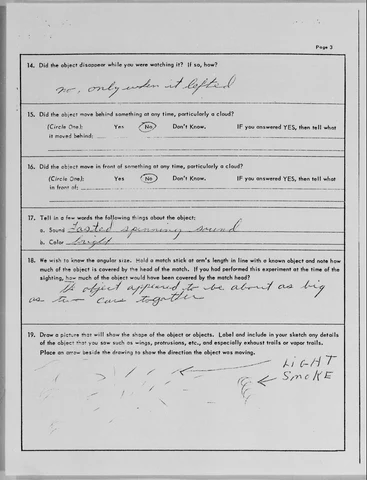 Page 3
14. Did the object disappear while you were watching it? If so, how?
no, only when it lefted
15. Did the object move behind something at any time, particularly a cloud?
(Circle One): Yes No Don't Know. IF you answered YES, then tell what
it moved behind:
16. Did the object move in front of something at any time, particularly a cloud?
(Circle One): Yes No Don't Know. IF you answered YES, then tell what
in front of:
17. Tell in a few words the following things about the object:
a. Sound Fasted spinning sound
b. Color bright
18. We wish to know the angular size. Hold a match stick at arm's length in line with a known object and note how
much of the object is covered by the head of the match. If you had performed this experiment at the time of the
sighting, how much of the object would have been covered by the match head?
the object appeared to be about as big
as two cars together
19. Draw a picture that will show the shape of the object or objects. Label and include in your sketch any details
of the object that you saw such as wings, protrusions, etc., and especially exhaust trails or vapor trails.
Place an arrow beside the drawing to show the direction the object was moving.
LiGHT
SmOKE